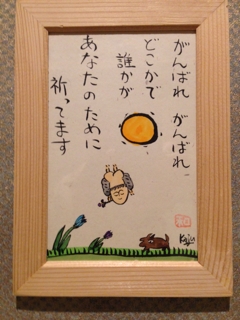 がんばれ がんばれ、
どこかで
誰かが
あなたのために
祈ってます
和